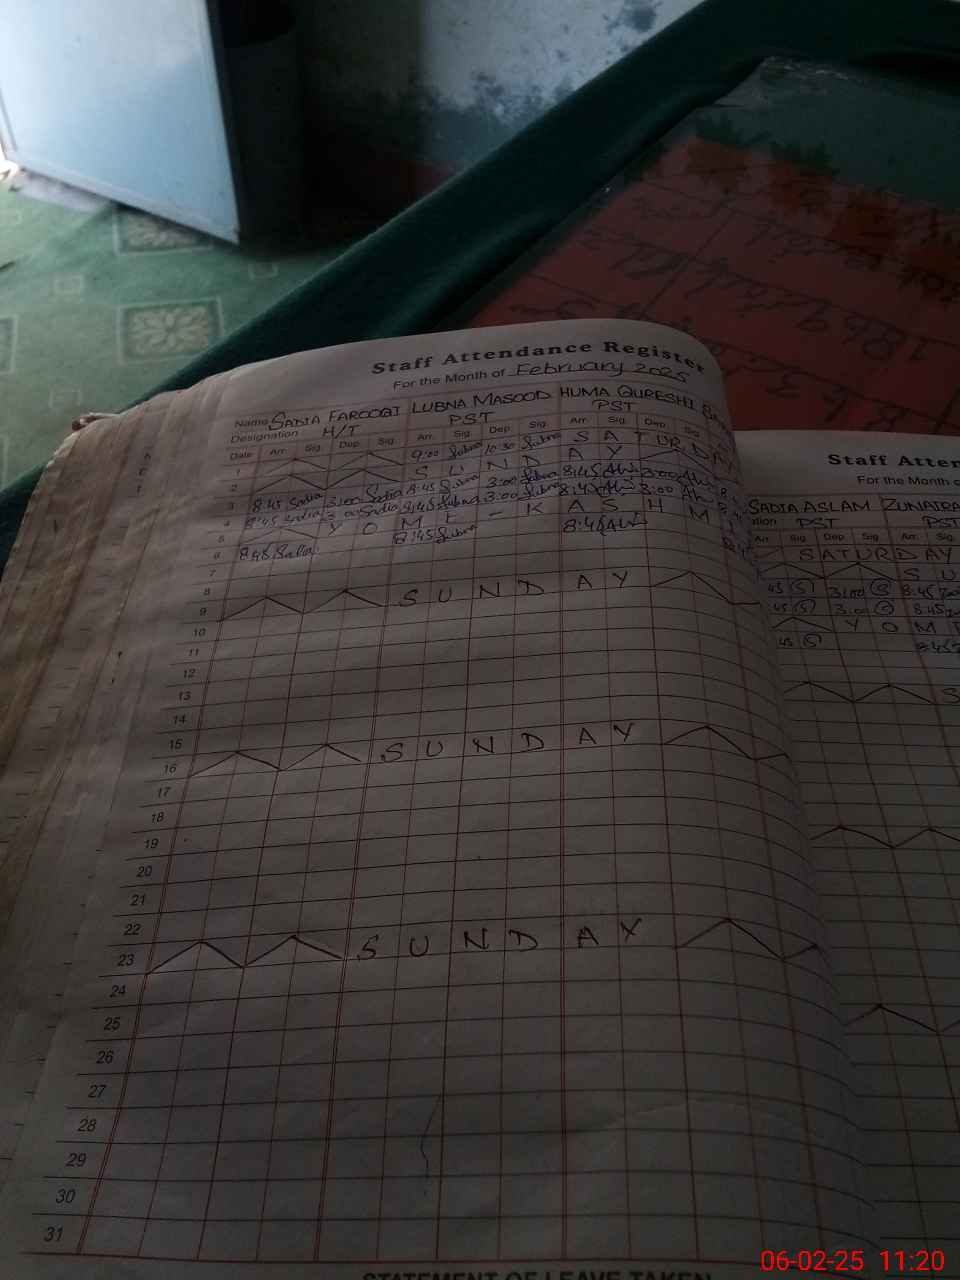 Staff Attendance Register
For the Month of February 2025
Name SADIA FAROOQI LUBNA MASOOD HUMA QURESHI
Designation H/T PST PST
Date Arr. Sig. Dep. Sig. Arr. Sig. Dep. Sig. Arr. Sig. Dep. Sig.
1 9:00 Lubna 10:30 Lubna S A T U R D A Y
2 S U N D A Y
3 8:45 Sadia 3:00 Sadia 8:45 Lubna 3:00 Lubna 8:45 3:00
4 8:45 Sadia 3:00 Sadia 8:45 Lubna 3:00 Lubna 8:45 3:00
5 Y O M E - K A S H M
6 8:45 Sadia 8:45 Lubna 8:45
7
8
9 S U N D A Y
10
11
12
13
14
15
16 S U N D A Y
17
18
19
20
21
22
23 S U N D A Y
24
25
26
27
28
29
30
31
STATEMENT OF LEAVE TAKEN
Staff Atten
For the Month o
SADIA ASLAM ZUNAIRA
ation PST PST
Arr. Sig. Dep. Sig. Arr. Sig.
S A T U R D A Y
S U
45 S 3:00 S 8:45
45 S 3:00 S 8:45
Y O M E
45 S 8:45
S
06-02-25 11:20